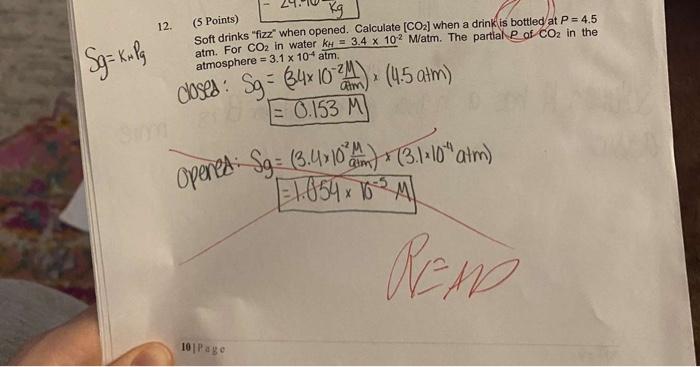 Kg
12. (5 Points)
Soft drinks "fizz" when opened. Calculate [CO₂] when a drink is bottled at P = 4.5
atm. For CO₂ in water kH = 3.4 x 10⁻² M/atm. The partial P of CO₂ in the
atmosphere = 3.1 x 10⁻⁴ atm.
Sg = KH Pg
closed: Sg = (3.4 x 10⁻² M/atm) x (4.5 atm)
= 0.153 M
opened: Sg = (3.4 x 10⁻² M/atm) x (3.1 x 10⁻⁴ atm)
= 1.054 x 10⁻⁵ M
READ
10 | Page